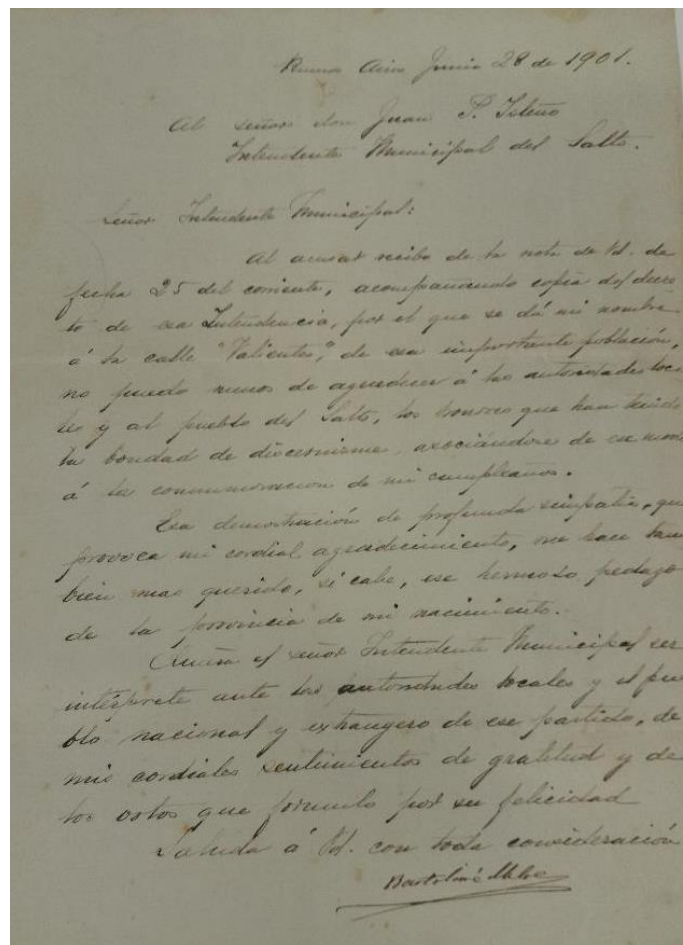 Buenos Aires Junio 28 de 1901.
Al señor don Juan P. Isleño
Intendente Municipal del Salto.
Señor Intendente Municipal:
Al acusar recibo de la nota de Vd. de
fecha 25 del corriente, acompañando copia del decre
to de esa Intendencia, por el que se dá mi nombre
á la calle "Valientes", de esa importante población,
no puedo menos de agradecer á las autoridades loca
les y al pueblo del Salto, los honores que han tenido
la bondad de discernirme, asociándose de ese modo
á la conmemoracion de mi cumpleaños.
Esa demostración de profunda simpatia, que
provoca mi cordial agradecimiento, me hace tam
bien mas querido, si cabe, ese hermoso pedazo
de la provincia de mi nacimiento.
Quiera el señor Intendente Municipal ser
intérprete ante las autoridades locales y el pue
blo nacional y extrangero de ese partido, de
mis cordiales sentimientos de gratitud y de
los votos que formulo por su felicidad
Saluda á Vd. con toda consideración
Bartolomé Mitre